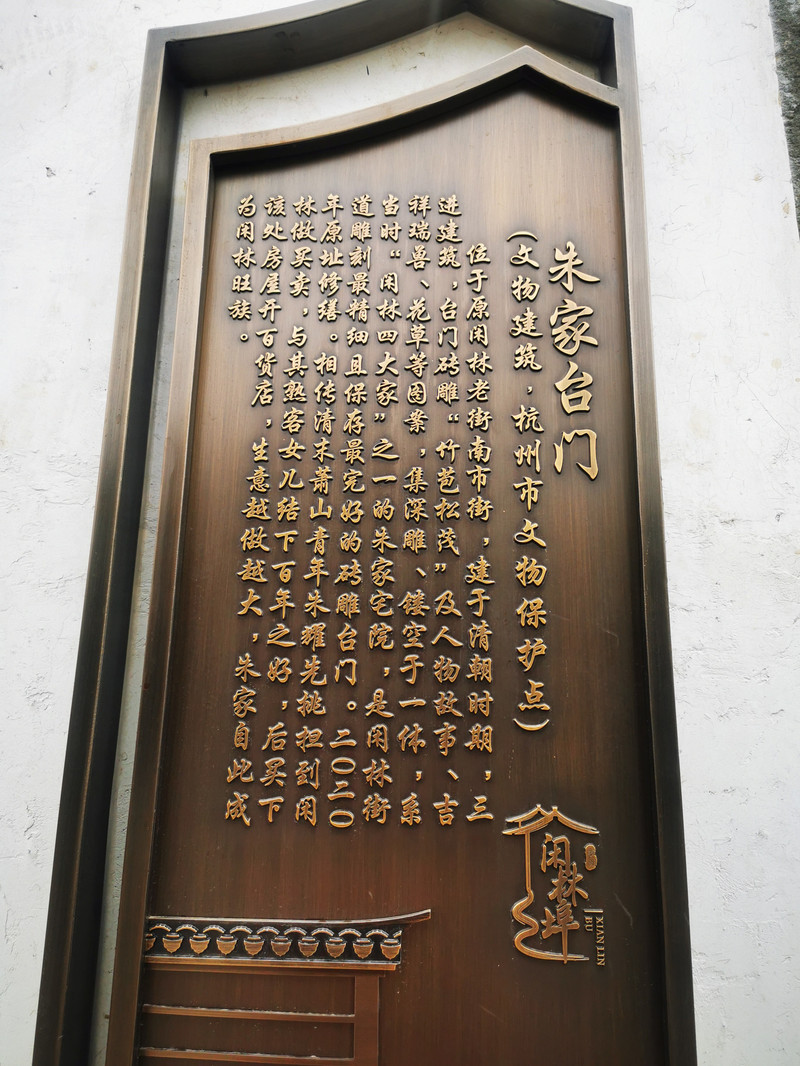 朱家台门
（文物建筑，杭州市文物保护点）
位于原闲林老街南市街，建于清朝时期，三
进建筑，台门砖雕“竹苞松茂”及人物故事、吉
祥瑞兽、花草等图案，集深雕、镂空于一体，系
当时“闲林四大家”之一的朱家宅院，是闲林街
道雕刻最精细且保存最完好的砖雕台门。二〇二〇
年原址修缮。相传清末萧山青年朱耀先挑担到闲
林做买卖，与其熟客女儿结下百年之好，后买下
该处房屋开百货店，生意越做越大，朱家自此成
为闲林旺族。
闲林埠
XIAN LIN
BU